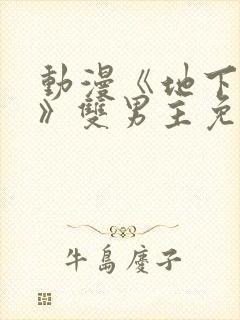 動漫《地下
》雙男主免
牛島慶子